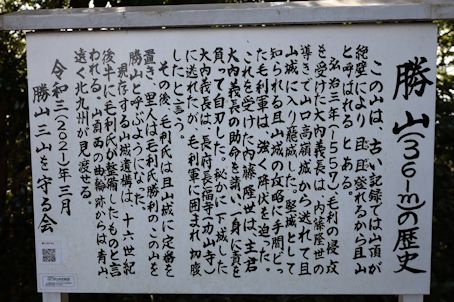 勝山(361m)の歴史
この山は、古い記録では山頂が
絶壁により且且登れるから且山
と呼ばれる とある。
弘治三年(1557)毛利の侵攻
を受けた大内義長は、内藤隆世の
導きで山口高嶺城から逃れて且
山城に入り籠城した。堅城として
知られる且山城の攻略に手間どっ
た毛利軍は、強く降伏を迫った。
これを受けた内藤隆世は、主君
大内義長の助命を請い、一身に責を
負って自刃した。秘かに下城した
大内義長は、長府長福寺(功山寺)
に逃れたが、毛利軍に囲まれ切腹
したと言う。
その後、毛利氏は且山城に定番を
置き、里人は毛利氏勝利のこの山を
勝山と呼ぶようになった。
現存する山城遺構は、十六世紀
後半に毛利氏が整備したものと言
われる。山頂西の曲輪跡からは青山、
遠く北九州が見渡せる。
令和三(2021)年三月
勝山三山を守る会